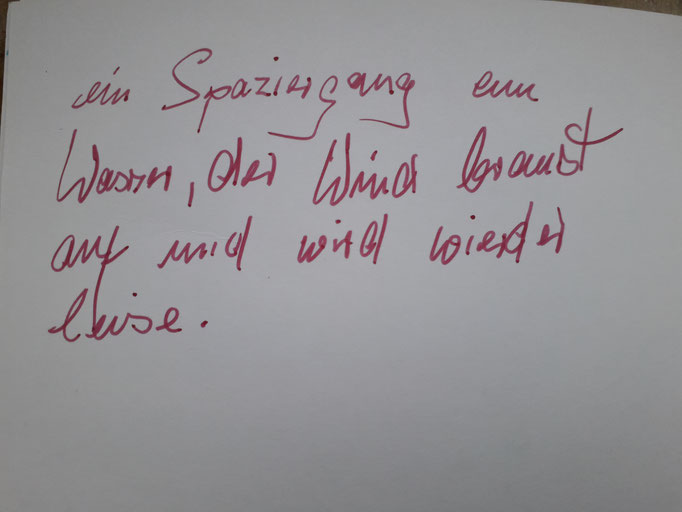 ein Spaziergang am
Wasser, der Wind braust
auf und wird wieder
leise.